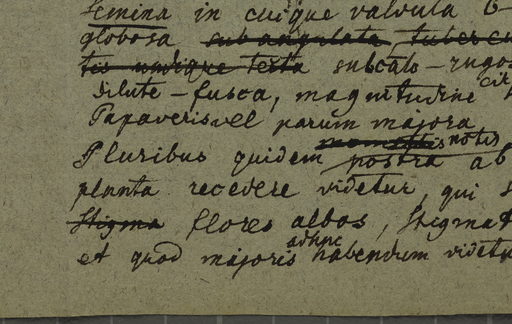 Semina in cuique valvula 6-
globosa subangulata tubercu
tis undique testa subcato-rugos
dilute-fusca, magnitudine cir
Papaveris vel parum majora
Pluribus quidem notis nostra ab
planta recedere videtur, qui
Stigma flores albos, Stigmat
et quod majoris adhuc habendum videtu